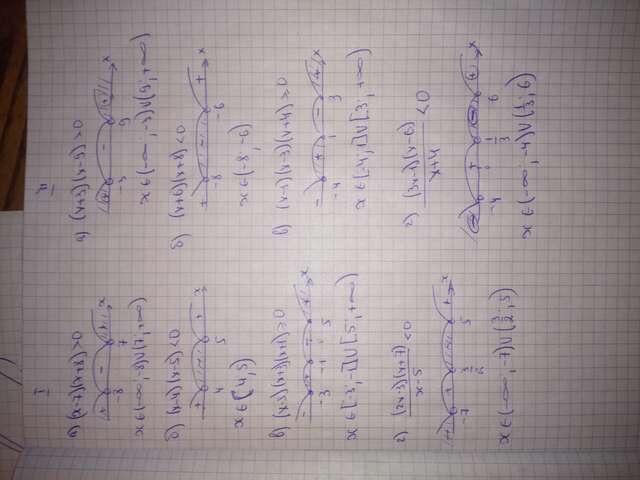 I
а) (x-7)(x+8)>0
+ - + x
-8 7
x∈(-∞,-8)∪(7;+∞)
б) (x-4)(x-5)<0
+ - + x
4 5
x∈(4,5)
в) (x-5)(x+3)(x+1)≥0
- + - + x
-3 -1 5
x∈[-3,-1]∪[5;+∞)
г) (2x-3)(x+7)/x-5 <0
- + - + x
-7 3/2 5
x∈(-∞,-7)∪(3/2;5)
II
а) (x+3)(x-9)>0
+ - + x
-3 9
x∈(-∞,-3)∪(9;+∞)
б) (x+6)(x+8)<0
+ - + x
-8 -6
x∈(-8,-6)
в) (x-1)(x-3)(x+4)≥0
- + - + x
-4 1 3
x∈[-4,1]∪[3;+∞)
г) (3x-1)(x-6)/x+4 <0
- + - + x
-4 1/3 6
x∈(-∞,-4)∪(1/3;6)